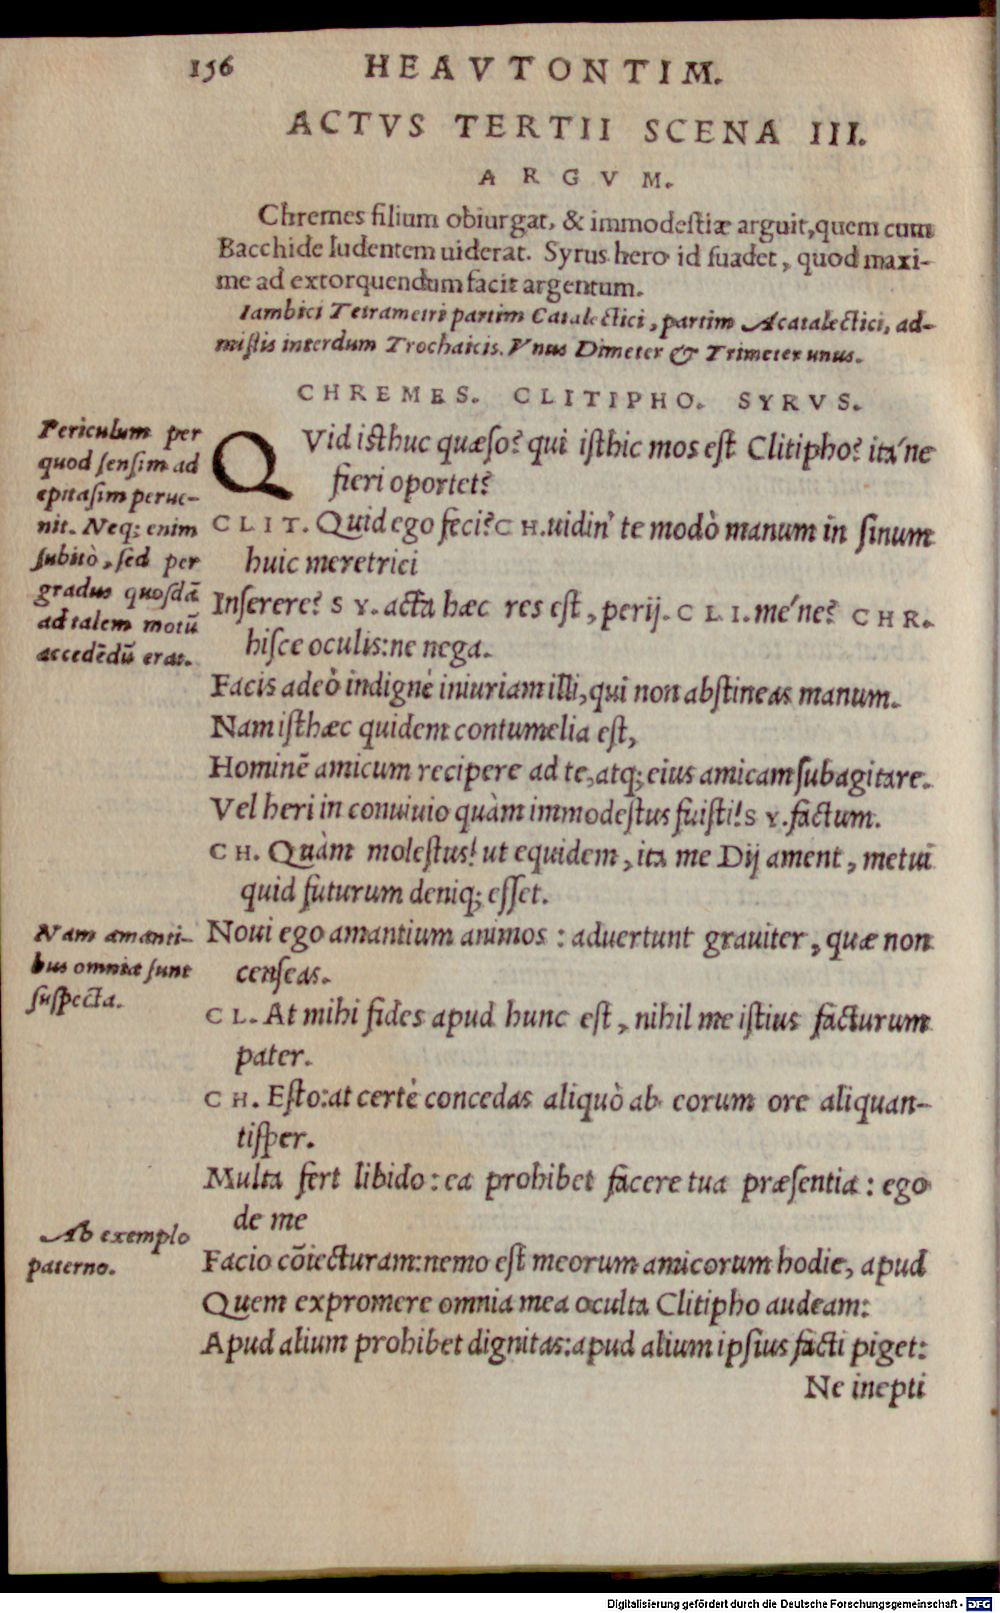 156 HEAVTONTIM.
ACTVS TERTII SCENA III.
ARGVM.
Chremes filium obiurgat, & immodestiæ arguit, quem cum
Bacchide ludentem uiderat. Syrus hero id suadet, quod maxi-
me ad extorquendum facit argentum.
Iambici Tetrametri partim Catalectici, partim Acatalectici, ad-
mistis interdum Trochaicis. Vnus Dimeter & Trimeter unus.
CHREMES. CLITIPHO. SYRVS.
Periculum per
quod sensim ad
epitasim perue-
nit. Neq; enim
subitò, sed per
gradus quosdā
ad talem motū
accedēdū erat.
QVid isthuc quæso? qui isthic mos est Clitipho? itá ne
fieri oportet?
CLIT. Quid ego feci? CH. uidin' te modò manum in sinum
huic meretrici
Inserere? SY. acta hæc res est, perij. CLI. mé ne? CHR.
hisce oculis: ne nega.
Facis adeò indignè iniuriam illi, qui non abstineas manum.
Nam isthæc quidem contumelia est,
Hominē amicum recipere ad te, atq; eius amicam subagitare.
Vel heri in conuiuio quàm immodestus fuisti! SY. factum.
CH. Quàm molestus! ut equidem, ita me Dij ament, metui
quid futurum deniq; esset.
Nam amanti-
bus omnia sunt
suspecta.
Noui ego amantium animos : aduertunt grauiter, quæ non
censeas.
CL. At mihi fides apud hunc est, nihil me istius facturum
pater.
CH. Esto: at certè concedas aliquò ab eorum ore aliquan-
tisper.
Multa fert libido : ea prohibet facere tua præsentia : ego
de me
Ab exemplo
paterno.
Facio cōiecturam: nemo est meorum amicorum hodie, apud
Quem expromere omnia mea occulta Clitipho audeam:
Apud alium prohibet dignitas: apud alium ipsius facti piget:
Ne inepti
Digitalisierung gefördert durch die Deutsche Forschungsgemeinschaft - DFG